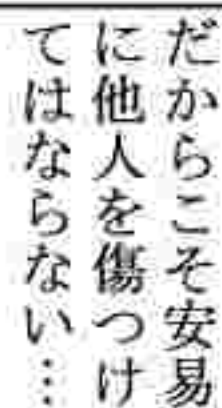 だからこそ安易
に他人を傷つけ
てはならない…